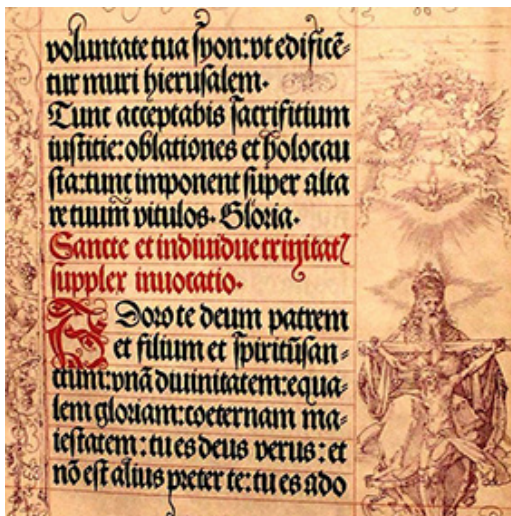 voluntate tua syon: vt edificē-
tur muri hierusalem.
Tunc acceptabis sacrifitium
iustitie: oblationes et holocau
sta: tunc imponent super alta
re tuum̄ vitulos. Gloria.
Sancte et indiuidue trinitatꝭ
supplex inuocatio.
ADoro te deum patrem
et filium et spiritūsan-
ctum: vnā diuinitatem: equa-
lem gloriam: coeternam ma-
iestatem: tu es deus verus: et
nō est alius preter te: tu es ado